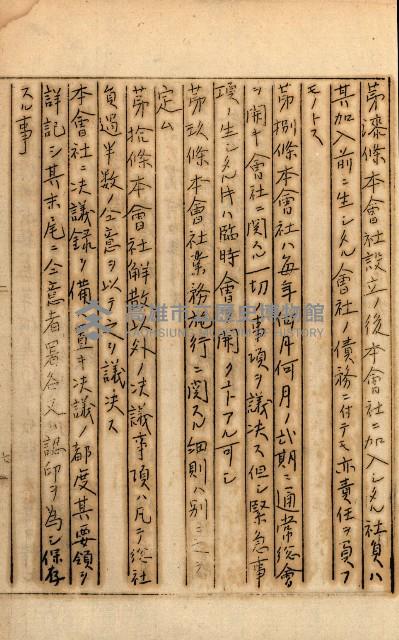 第漆條本會社設立ノ後本會社ニ加入シタル社員ハ
其加入前ニ生シタル會社ノ債務ニ付テモ亦責任ヲ負フ
モノトス
第捌條本會社ハ每年 何月何月ノ弐期ニ通常総會
ヲ開キ會社ニ関スル一切ノ事項ヲ議決ス但シ緊急事
項ノ生シタル片ハ臨時會ヲ開クヿアル可シ
第玖條本會社業務施行ニ関スル細則ハ別ニ之ヲ
定ム
第拾條本會社解散以外ノ決議事項ハ凡テ総社
員過半数ノ仝意ヲ以テ之ヲ議決ス
本會社ニ決議録ヲ備置キ決議ノ都度其要領ヲ
詳記シ其末尾ニ仝意者署名又ハ認印ヲ為シ保存
スル事
高雄市立歷史博物館
KAOHSIUNG MUSEUM OF HISTORY